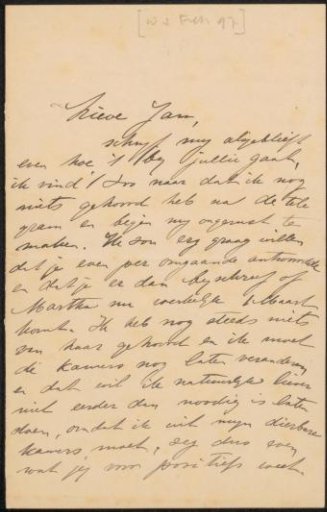 Lieve Jan,
schrijf mij alsjeblieft
even hoe 't bij jullie gaat,
ik vind 't zoo naar dat ik nog
niets gehoord heb na de tele
gram en begin mij ongerust te
maken. Ik zou erg graag willen
dat je even per omgaande antwoordde
en dat je er dan bij schreef of
Martha nu werkelijk 1 Maart
komt. Ik heb nog steeds niets
van haar gehoord en ik moet
de kamers nog laten veranderen
en dat wil ik natuurlijk liever
niet eerder dan noodig is laten
doen, omdat ik uit mijn dierbare
kamers moet, zeg dus even
wat jij voor positiefs weet.